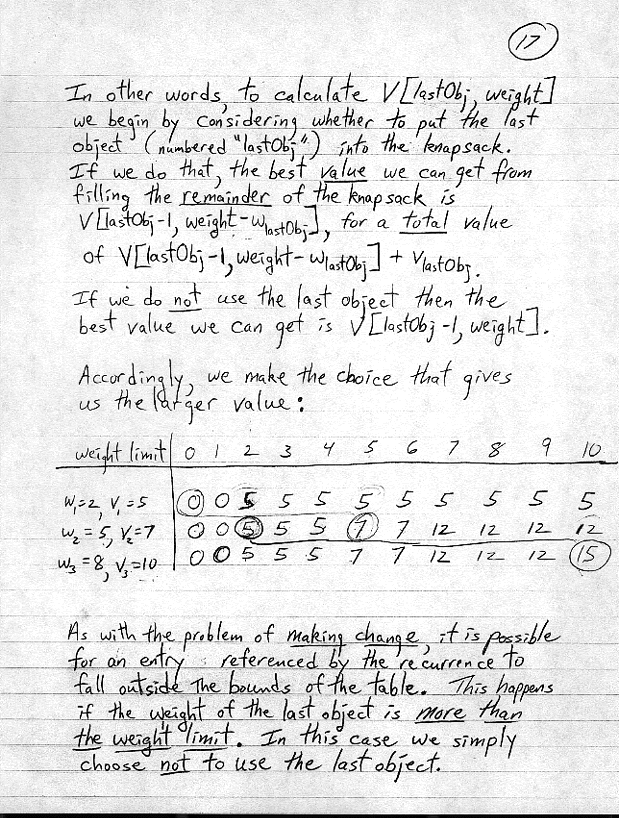 17
In other words, to calculate V[lastObj, weight]
we begin by considering whether to put the last
object (numbered "lastObj") into the knapsack.
If we do that, the best value we can get from
filling the remainder of the knapsack is
V[lastObj-1, weight-wlastObj], for a total value
of V[lastObj-1, weight-wlastObj] + vlastObj.
If we do not use the last object then the
best value we can get is V[lastObj-1, weight].
Accordingly, we make the choice that gives
us the larger value:
weight limit 0 1 2 3 4 5 6 7 8 9 10
w1=2, v1=5 0 0 5 5 5 5 5 5 5 5 5
w2=5, v2=7 0 0 5 5 5 7 7 12 12 12 12
w3=8, v3=10 0 0 5 5 5 7 7 12 12 12 15
As with the problem of making change, it is possible
for an entry referenced by the recurrence to
fall outside the bounds of the table. This happens
if the weight of the last object is more than
the weight limit. In this case we simply
choose not to use the last object.